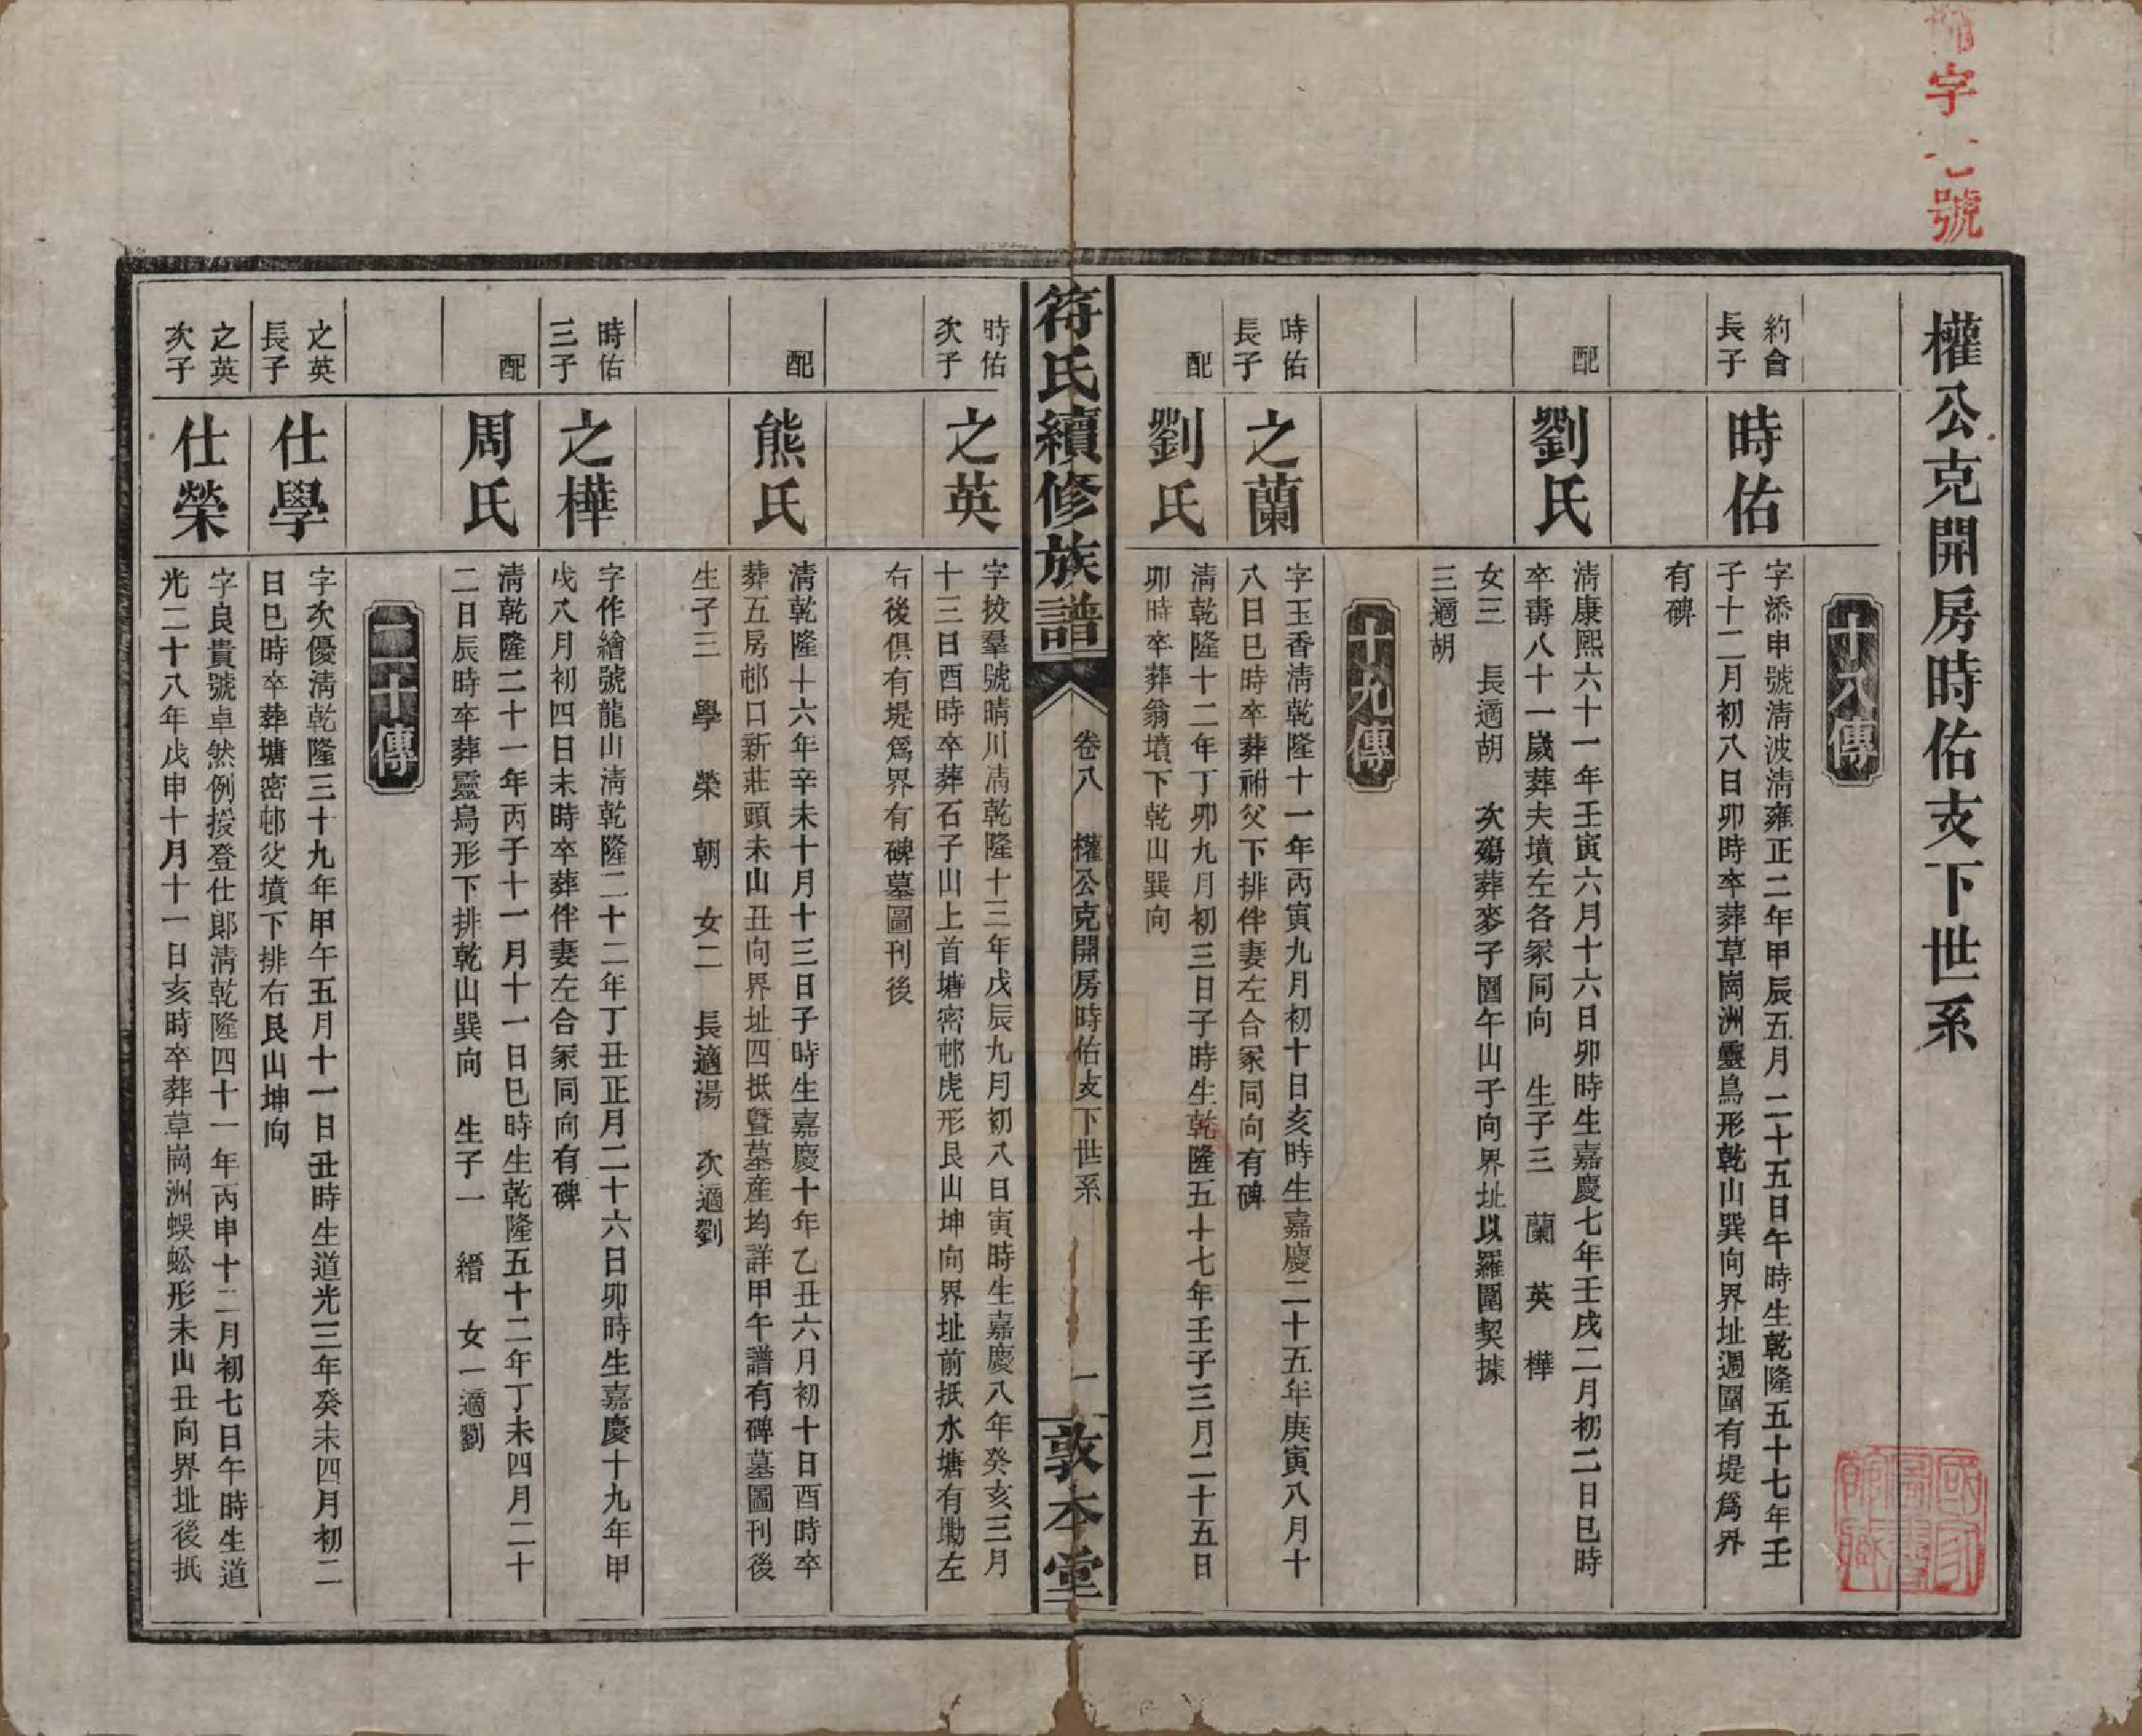 字號
權公克開房時佑支下世系
十八傳
約會
長子
時佑
字添申號清波清雍正二年甲辰五月二十五日午時生乾隆五十七年壬
子十二月初八日卯時卒葬草崗洲靈鳥形乾山巽向界址週圍有堤爲界
有碑
配
劉氏
清康熙六十一年壬寅六月十六日卯時生嘉慶七年壬戌二月初二日巳時
卒壽八十一歲葬夫墳左各冢同向 生子三 蘭 英 樺
女三 長適胡 次殤葬麥子園午山子向界址以羅圍契據
三適胡
十九傳
時佑
長子
之蘭
字玉香清乾隆十一年丙寅九月初十日亥時生嘉慶二十五年庚寅八月十
八日巳時卒葬祔父下排伴妻左合冢同向有碑
配
劉氏
清乾隆十二年丁卯九月初三日子時生乾隆五十七年壬子三月二十五日
卯時卒葬翁墳下乾山巽向
符氏續修族譜
卷八 權公克開房時佑支下世系
一
敦本堂
時佑
次子
之英
字拔羣號晴川清乾隆十三年戊辰九月初八日寅時生嘉慶八年癸亥三月
十三日酉時卒葬石子山上首塘密邨虎形艮山坤向界址前抵水塘有墈左
右後俱有堤爲界有碑墓圖刊後
配
熊氏
清乾隆十六年辛未十月十三日子時生嘉慶十年乙丑六月初十日酉時卒
葬五房邨口新莊頭未山丑向界址四抵暨墓產均詳甲午譜有碑墓圖刊後
生子三 學 榮 朝 女二 長適湯 次適劉
時佑
三子
之樺
字作繪號龍山清乾隆二十二年丁丑正月二十六日卯時生嘉慶十九年甲
戌八月初四日未時卒葬伴妻左合冢同向有碑
配
周氏
清乾隆二十一年丙子十一月十一日巳時生乾隆五十二年丁未四月二十
二日辰時卒葬靈鳥形下排乾山巽向 生子一 縉 女一適劉
二十傳
之英
長子
仕學
字次優清乾隆三十九年甲午五月十一日丑時生道光三年癸未四月初二
日巳時卒葬塘密邨父墳下排右艮山坤向
之英
次子
仕榮
字良貴號卓然例援登仕郎清乾隆四十一年丙申十二月初七日午時生道
光二十八年戊申十月十一日亥時卒葬草崗洲蜈蚣形未山丑向界址後抵